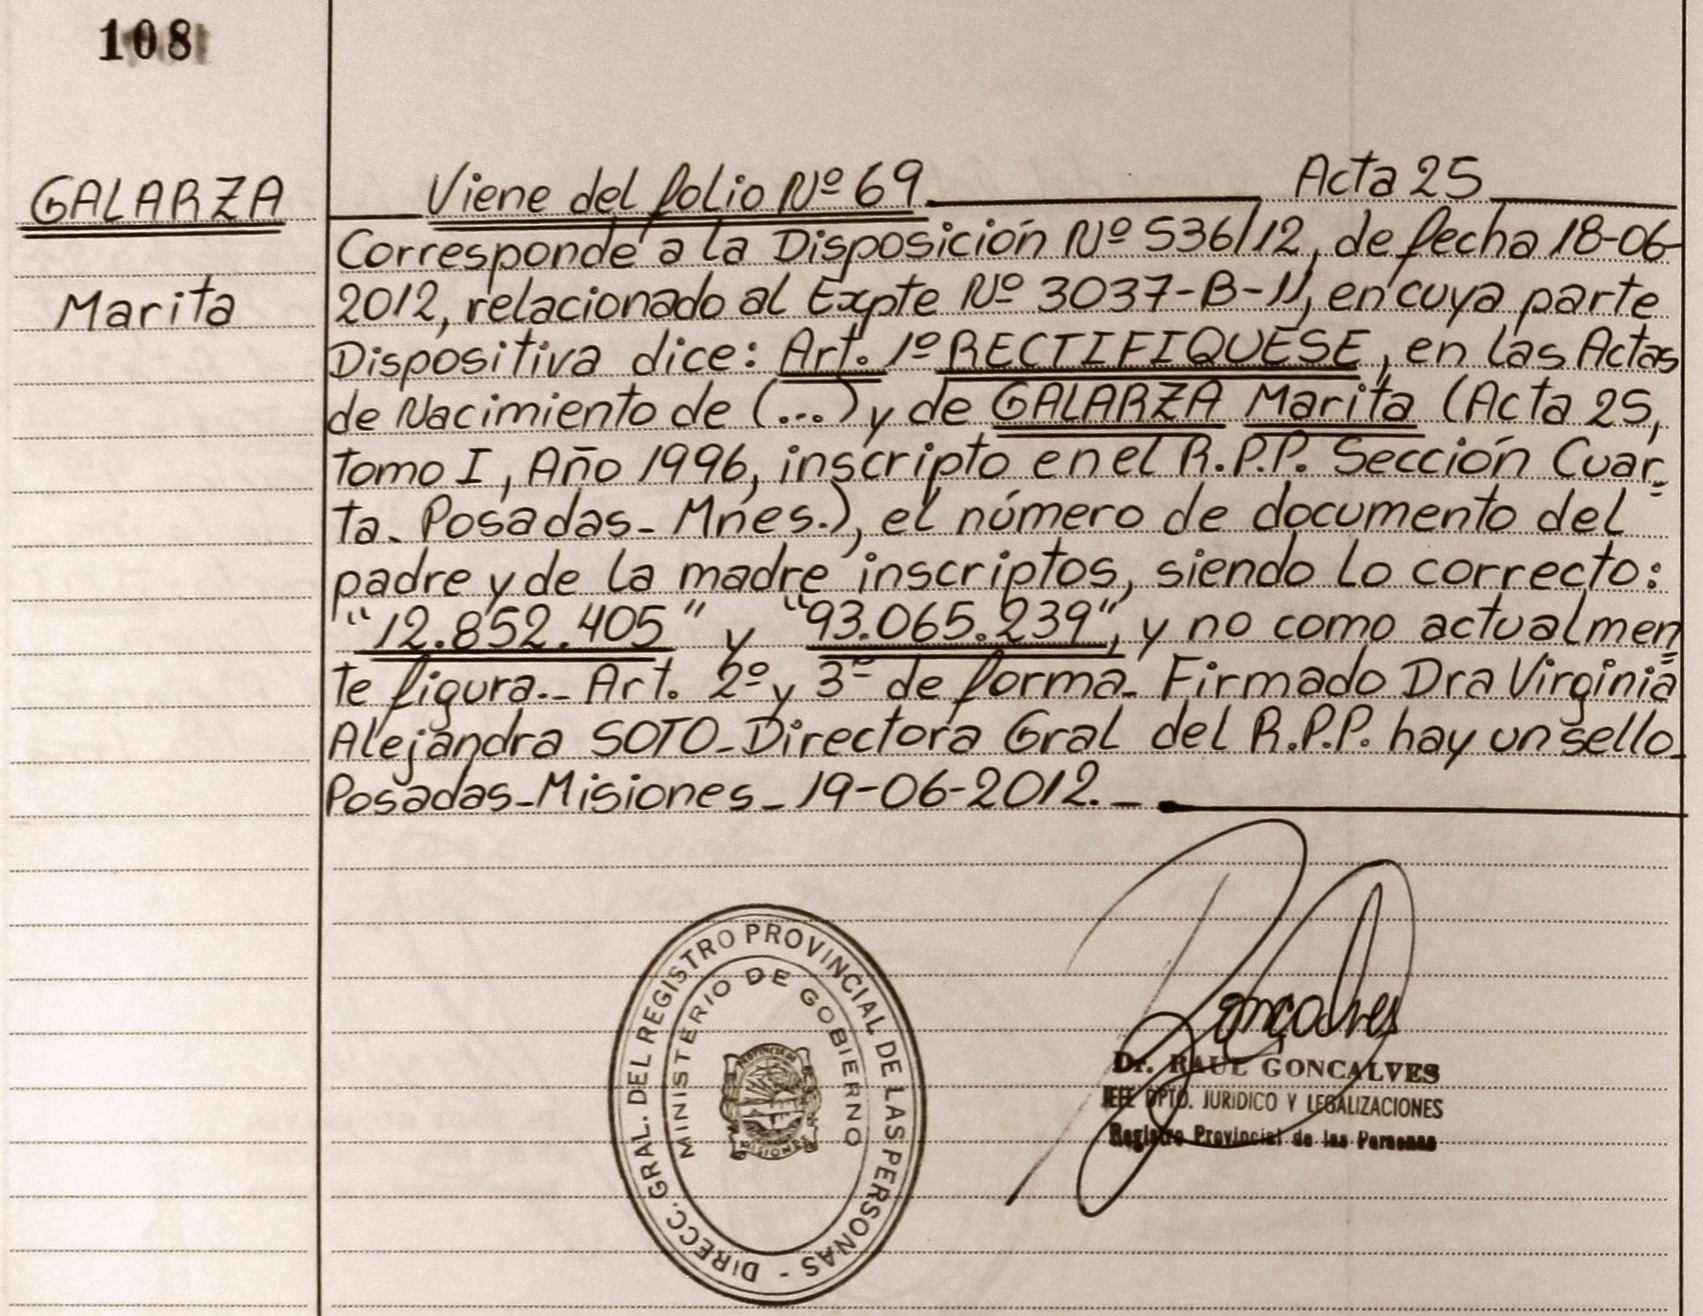 108
GALARZA
Marita
Viene del folio Nº 69. Acta 25
Corresponde a la Disposición Nº 536/12, de fecha 18-06-
2012, relacionado al Expte Nº 3037-B-11, en cuya parte
Dispositiva dice: Art. 1º RECTIFIQUESE, en las Actas
de Nacimiento de (...) y de GALARZA Marita (Acta 25,
Tomo I, Año 1996, inscripto en el R.P.P. Sección Cuar=
ta. Posadas- Mnes.), el número de documento del
padre y de la madre inscriptos, siendo lo correcto:
"12.852.405" y "93.065.239", y no como actualmen=
te figura.- Art. 2º y 3º de forma. Firmado Dra Virginia
Alejandra SOTO-Directora Gral del R.P.P. hay un sello-
Posadas-Misiones- 19-06-2012.-
DIRECC. GRAL. DEL REGISTRO PROVINCIAL DE LAS PERSONAS -
MINISTERIO DE GOBIERNO
PROVINCIA DE
MISIONES
Gonçalves
Dr. RAUL GONCALVES
JEFE DPTO. JURIDICO Y LEGALIZACIONES
Registro Provincial de las Personas